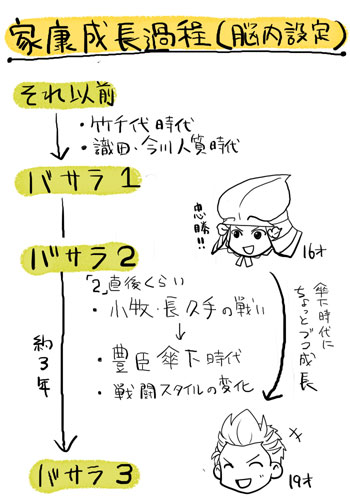 家康成長過程(脳内設定)
それ以前
・竹千代時代
・識田・今川人質時代
バサラ1
忠勝!!
16才
バサラ2
「2」直後くらい
・小牧・長久手の戦い
・豊臣傘下時代
・戦闘スタイルの変化
約3年
傘下時代に
ちょっとづつ成長
バサラ3
19才